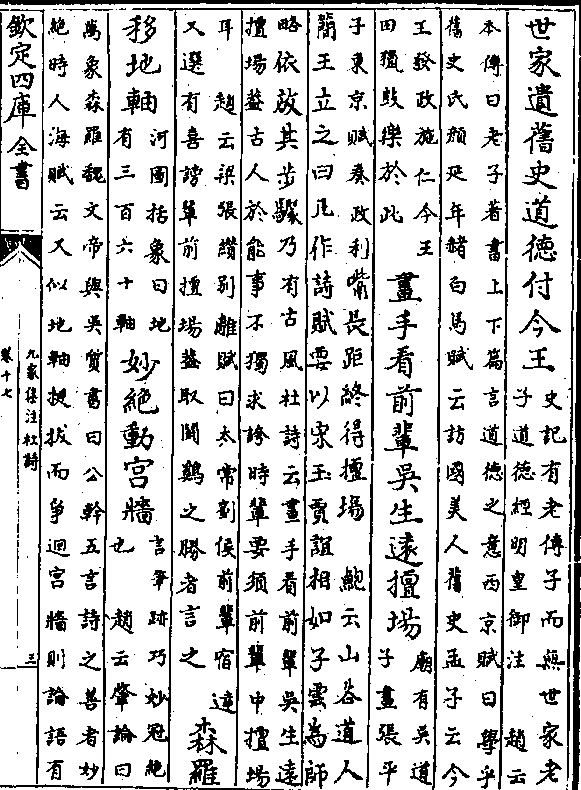 世家遺舊史道徳付今王史記有老傳子而無世家老
子道徳經明皇御注 趙云
本傳曰老子著書上下篇言道徳之意西京賦曰學乎
舊史氏顔延年赭白馬賦云訪國美人舊史孟子云今
王發政施仁今王
田獵鼓樂於此
畫手看前輩吳生遠擅場廟有吳道
子畫張平
子東京賦秦政利觜長距終得擅場 鮑云山谷道人
簡王立之曰凡作詩賦要以宋玉賈誼相如子雲為師
略依放其步驟乃有古風杜詩云畫手看前輩吳生遠
擅場葢古人於能事不獨求誇時輩要須前輩中擅場
耳 趙云梁張纘别離賦曰太常劉侯前輩宿達
又選有喜謗輩前擅場葢取鬭鷄之勝者言之
森羅
移地軸河圖括象曰地
有三百六十軸
妙絶動宫牆言筆跡巧妙冠絶
也 趙云肇論曰
萬象森羅魏文帝與吳質書曰公幹五言詩之善者妙
絶時人海賦云又似地軸挺拔而爭迴宫牆則論語有
欽定四庫全書
九家集注杜詩
卷十七
三